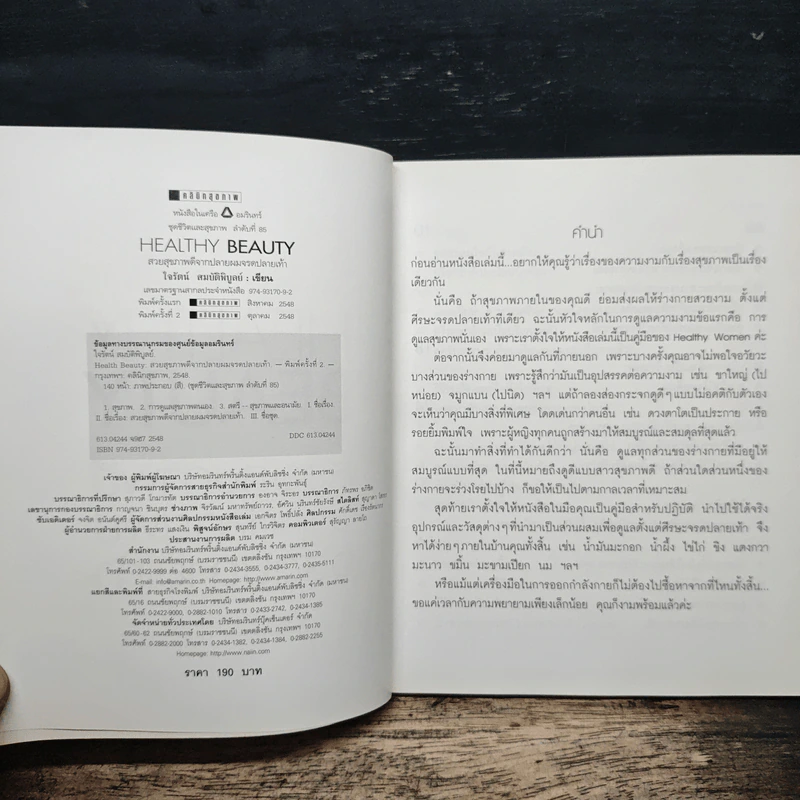 คลินิกสุขภาพ
หนังสือในเครือ อมรินทร์
ชุดชีวิตและสุขภาพ ลำดับที่ 85
HEALTHY BEAUTY
สวยสุขภาพดีจากปลายผมจรดปลายเท้า
ใจรัตน์ สมบัติพิบูลย์ : เขียน
เลขมาตรฐานสากลประจำหนังสือ 974-93170-9-2
พิมพ์ครั้งแรก คลินิกสุขภาพ สิงหาคม 2548
พิมพ์ครั้งที่ 2 คลินิกสุขภาพ ตุลาคม 2548
ข้อมูลทางบรรณานุกรมของศูนย์ข้อมูลอมรินทร์
ใจรัตน์ สมบัติพิบูลย์
Health Beauty: สวยสุขภาพดีจากปลายผมจรดปลายเท้า. -- พิมพ์ครั้งที่ 2 --
กรุงเทพฯ: คลินิกสุขภาพ, 2548.
140 หน้า. ภาพประกอบ (สี). (ชุดชีวิตและสุขภาพ ลำดับที่ 85)
1. สุขภาพ. 2. การดูแลสุขภาพตนเอง. 3. สตรี -- สุขภาพและอนามัย. I. ชื่อเรื่อง
II. ชื่อเรื่อง: สวยสุขภาพดีจากปลายผมจรดปลายเท้า. III. ชื่อชุด.
613.04244 2548
DDC 613.04244
ISBN 974-93170-9-2
เจ้าของ ผู้พิมพ์ผู้โฆษณา บริษัทอมรินทร์พริ้นติ้งแอนด์พับลิชชิ่ง จำกัด (มหาชน)
กรรมการผู้จัดการสายธุรกิจสำนักพิมพ์ ระริน อุทกะพันธุ์
บรรณาธิการที่ปรึกษา สุภาวดี โกมารทัต บรรณาธิการอำนวยการ องอาจ จิระอร บรรณาธิการ
เลขานุการกองบรรณาธิการ กาญจนา ช่วงภาพ จีรวัฒน์ สไตลิสท์
ซับเอดิเตอร์ จงจิต ผู้จัดการส่วนงานศิลปกรรมหนังสือเล่ม เอกจิตร โพธิ์ปลั่ง ศิลปกรรม
ผู้อำนวยการฝ่ายการผลิต ธีระทร แสงเงิน พิสูจน์อักษร สุนทรีย์ คอมพิวเตอร์
ประสานงานการผลิต บรม คมเวช
สำนักงาน บริษัทอมรินทร์พริ้นติ้งแอนด์พับลิชชิ่ง จำกัด (มหาชน)
65/101-103 ถนนชัยพฤกษ์ (บรมราชชนนี) เขตตลิ่งชัน กรุงเทพฯ 10170
โทรศัพท์ 0-2422-9999 ต่อ 4600 โทรสาร 0-2434-3555, 0-2434-3777, 0-2435-5111
E-mail: info@amarin.co.th Homepage: http://www.amarin.com
แยกสีและพิมพ์ที่ สายธุรกิจโรงพิมพ์ บริษัทอมรินทร์พริ้นติ้งแอนด์พับลิชชิ่ง จำกัด (มหาชน)
65/16 ถนนชัยพฤกษ์ (บรมราชชนนี) เขตตลิ่งชัน กรุงเทพฯ 10170
โทรศัพท์ 0-2422-9000, 0-2882-1010 โทรสาร 0-2433-2742, 0-2434-1385
จัดจำหน่ายทั่วประเทศโดย บริษัทอมรินทร์บุ๊คเซ็นเตอร์ จำกัด
65/60-62 ถนนชัยพฤกษ์ (บรมราชชนนี) เขตตลิ่งชัน กรุงเทพฯ 10170
โทรศัพท์ 0-2882-2000 โทรสาร 0-2434-1384, 0-2434-1382, 0-2882-2255
Homepage: http://www.naiin.com
ราคา 190 บาท
คำนำ
ก่อนอ่านหนังสือเล่มนี้...อยากให้คุณรู้ว่าเรื่องของความงามกับเรื่องสุขภาพเป็นเรื่อง
เดียวกัน
นั่นคือ ถ้าสุขภาพภายในของคุณดี ย่อมส่งผลให้ร่างกายสวยงาม ตั้งแต่
ศีรษะจรดปลายเท้าทีเดียว ฉะนั้นหัวใจหลักในการดูแลความงามข้อแรกคือ การ
ดูแลสุขภาพนั่นเอง เพราะเราตั้งใจให้หนังสือเล่มนี้เป็นคู่มือของ Healthy Women ค่ะ
ต่อจากนั้นจึงค่อยมาดูแลกันที่ภายนอก เพราะบางครั้งคุณอาจไม่พอใจอวัยวะ
บางส่วนของร่างกาย เพราะรู้สึกว่ามันเป็นอุปสรรคต่อความงาม เช่น ขาใหญ่ (ไป
หน่อย) จมูกแบน (ไปนิด) ฯลฯ แต่ถ้าลองส่องกระจกดูดีๆ แบบไม่อคติกับตัวเอง
จะเห็นว่าคุณมีบางสิ่งที่พิเศษ โดดเด่นกว่าคนอื่น เช่น ดวงตาโตเป็นประกาย หรือ
รอยยิ้มพิมพ์ใจ เพราะผู้หญิงทุกคนถูกสร้างมาให้สมบูรณ์และสมดุลที่สุดแล้ว
ฉะนั้นมาทำสิ่งที่ทำได้กันดีกว่า นั่นคือ ดูแลทุกส่วนของร่างกายที่มีอยู่ให้
สมบูรณ์แบบที่สุด ในที่นี้หมายถึงดูดีแบบสาวสุขภาพดี ถ้าส่วนใดส่วนหนึ่งของ
ร่างกายจะร่วงโรยไปบ้าง ก็ขอให้เป็นไปตามกาลเวลาที่เหมาะสม
สุดท้ายเราตั้งใจให้หนังสือในมือคุณเป็นคู่มือสำหรับปฏิบัติ นำไปใช้ได้จริง
อุปกรณ์และวัสดุต่างๆ ที่นำมาเป็นส่วนผสมเพื่อดูแลตั้งแต่ศีรษะจรดปลายเท้า จึง
หาได้ง่ายๆ ภายในบ้านคุณทั้งสิ้น เช่น น้ำมันมะกอก น้ำผึ้ง ไข่ไก่ ขิง แตงกวา
มะนาว ขมิ้น มะขามเปียก นม ฯลฯ
หรือแม้แต่เครื่องมือในการออกกำลังกายก็ไม่ต้องไปซื้อหาจากที่ไหนทั้งสิ้น...
ขอแค่เวลากับความพยายามเพียงเล็กน้อย คุณก็งามพร้อมแล้วค่ะ